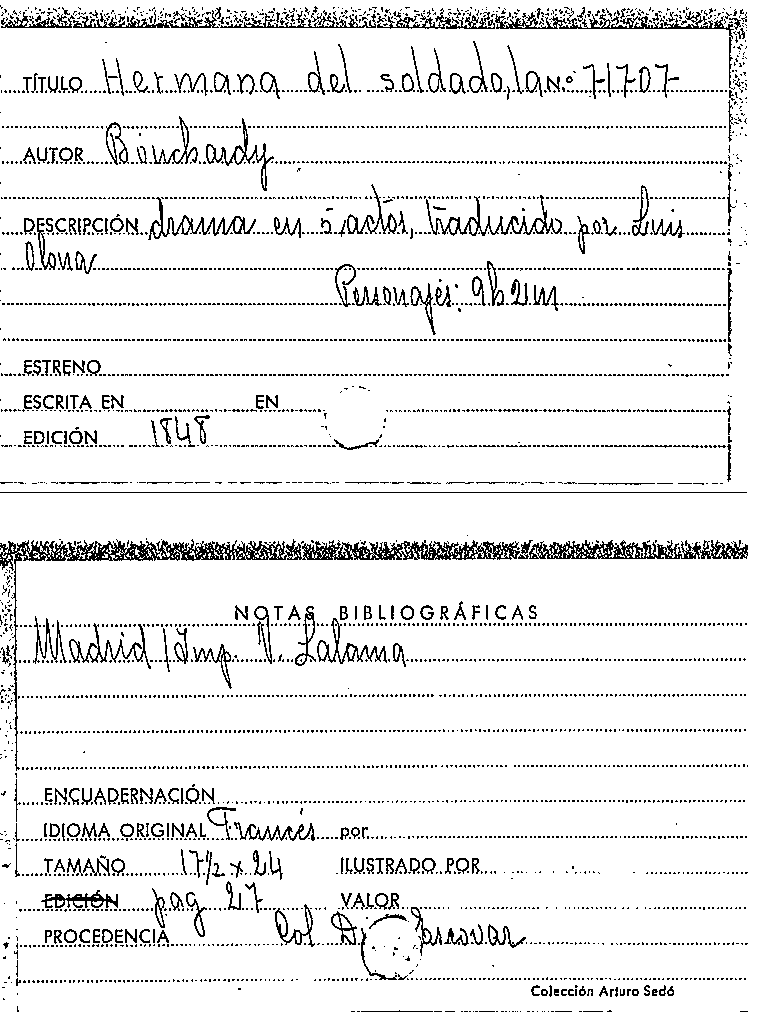 TÍTULO Hermana del soldado, la N.º 71707
AUTOR Bouchardy
DESCRIPCIÓN drama en 5 actos, traducido por Luis
Olona
Personajes: 9h 2m
ESTRENO
ESCRITA EN EN
EDICIÓN 1848
NOTAS BIBLIOGRÁFICAS
Madrid / Imp. V. Lalama
ENCUADERNACIÓN
IDIOMA ORIGINAL Francés por
TAMAÑO 17½ x 24 ILUSTRADO POR
EDICIÓN pag 27 VALOR
PROCEDENCIA Col
Colección Arturo Sedó